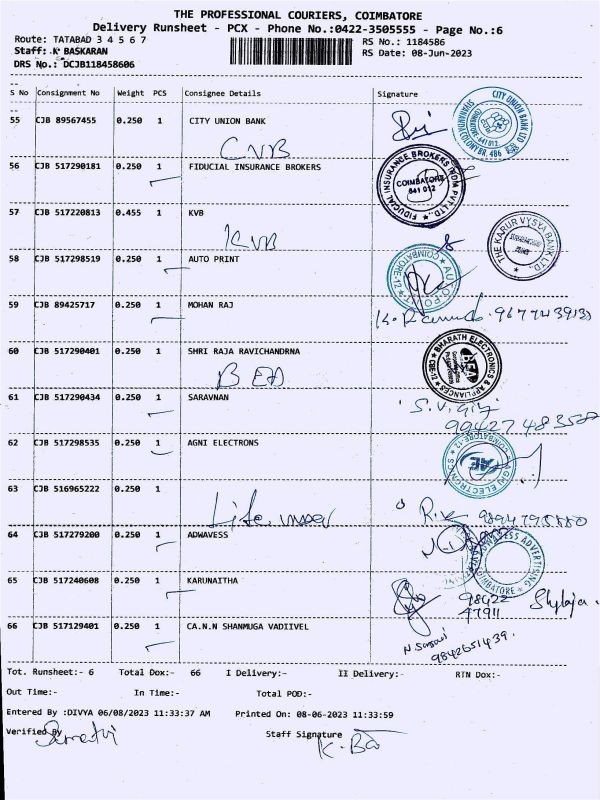 THE PROFESSIONAL COURIERS, COIMBATORE
Delivery Runsheet - PCX - Phone No.:0422-3505555 - Page No.:6
Route: TATABAD 3 4 5 6 7
RS No.: 1184586
Staff: K BASKARAN
RS Date: 08-Jun-2023
DRS No.: DCJB118458606
S No Consignment No Weight PCS Consignee Details Signature
55 CJB 89567455 0.250 1 CITY UNION BANK
CITY UNION BANK LTD
CVB
56 CJB 517290181 0.250 1 FIDUCIAL INSURANCE BROKERS
FIDUCIAL INSURANCE BROKERS INDIA PVT. LTD.,
COIMBATORE
641 012
57 CJB 517220813 0.455 1 KVB
KVB
THE KARUR VYSYA BANK LTD.,
58 CJB 517298519 0.250 1 AUTO PRINT
COIMBATORE-12
59 CJB 89425717 0.250 1 MOHAN RAJ
60 CJB 517290401 0.250 1 SHRI RAJA RAVICHANDRNA
BHARATH ELECTRONICS & APPLIANCES
CBE-12
BEA
61 CJB 517290434 0.250 1 SARAVNAN
62 CJB 517298535 0.250 1 AGNI ELECTRONS
AGNI ELECTRONS
COIMBATORE-12
63 CJB 516965222 0.250 1
64 CJB 517279200 0.250 1 ADWAVESS
ADWAVESS ADVERTISING
COIMBATORE
65 CJB 517240608 0.250 1 KARUNAITHA
98422
77911
Shylaja.
66 CJB 517129401 0.250 1 CA.N.N SHANMUGA VADIIVEL
9842651439.
Tot. Runsheet:- 6 Total Dox:- 66 I Delivery:- II Delivery:- RTN Dox:-
Out Time:- In Time:- Total POD:-
Entered By :DIVYA 06/08/2023 11:33:37 AM Printed On: 08-06-2023 11:33:59
Verified By Staff Signature